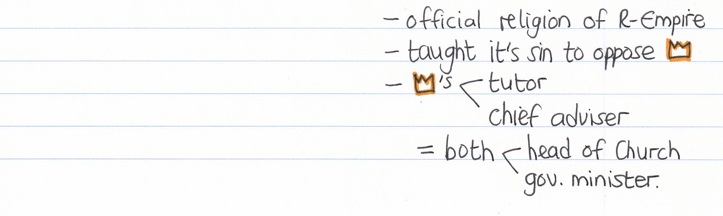 - official religion of R-Empire
- taught it's sin to oppose
- 's < tutor
chief adviser
= both < head of Church
gov. minister.